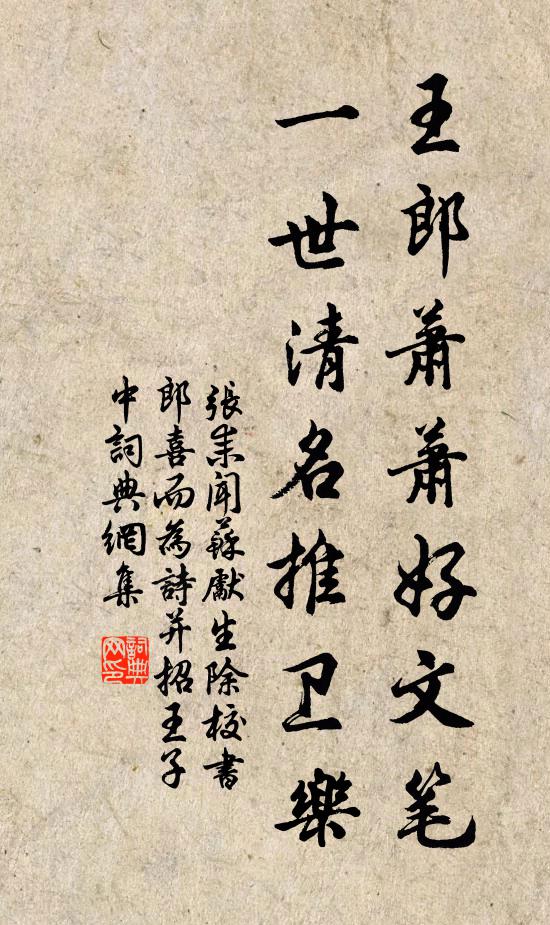 王郎蕭蕭好文笔
一世清名推卫樂
張耒聞蘇獻生除校書
郎喜而為詩并招王子
中詞典網集
詞典网印